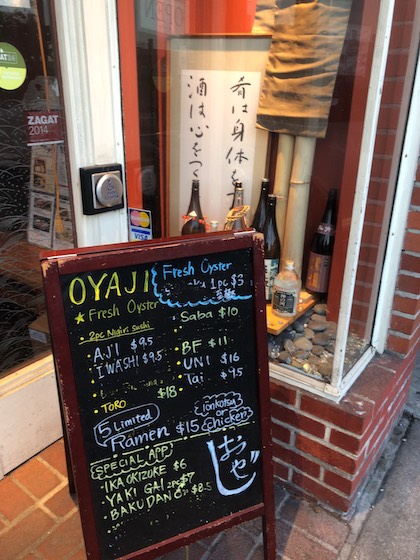 ZAGAT
2014
VISA
肴は身体を
酒は心をつく
OYAJI
Fresh Oyster
1pc $3
★ Fresh Oyster
• 2pc Nigiri sushi
• AJI $9.5
• IWASHI $9.5
$18
• TORO
• Saba $10
• BF $11
• UNI $16
• Tai $9.5
5 Limited
Ramen $15
Tonkotsu
or
Chicken
SPECIAL APP
• IKA OKIZUKE $6
• YAKI GAI 2pc $7
• BAKUDAN $8.5
おやじ